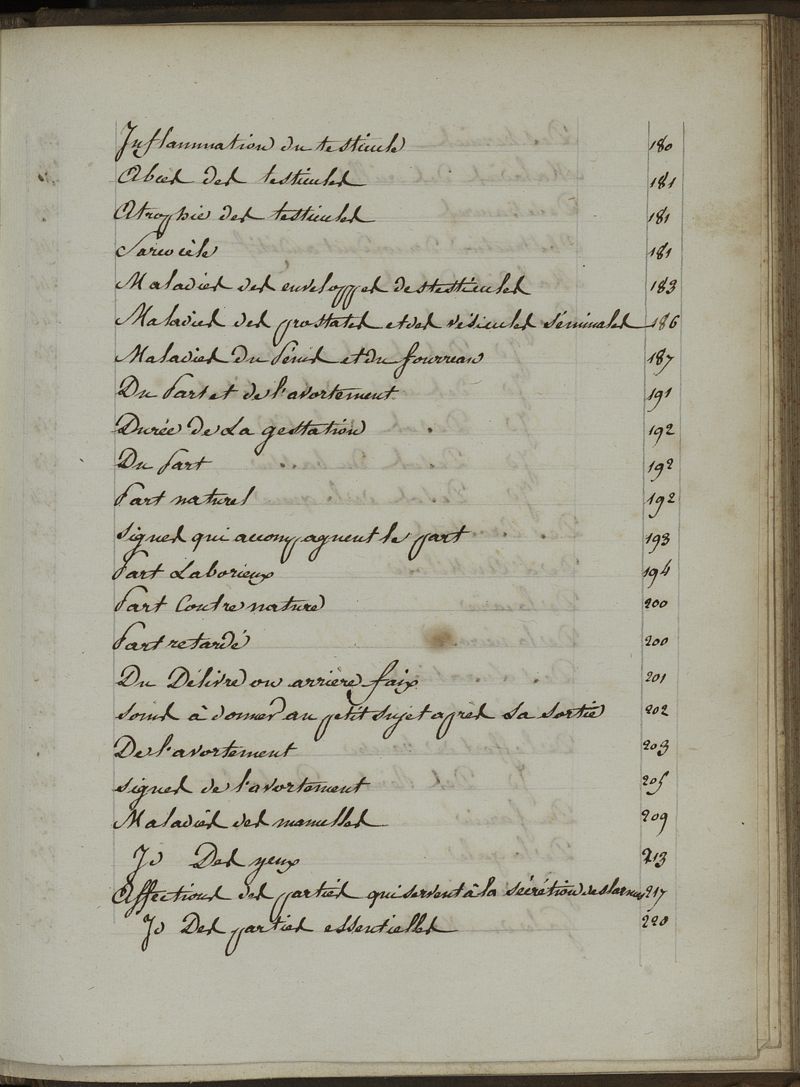 Inflammation du testicule 180
Abcès des testicules 181
Atrophie des testicules 181
Sarcocèle 181
Maladies des enveloppes des testicules 183
Maladies des prostates et des vésicules séminales 186
Maladies du Pénis et du fourreau 187
Du Part et de l'avortement 191
Durée de La gestation 192
Du Part 192
Part naturel 192
signes qui accompagnent le part 193
Part Laborieux 194
Part Contre nature 200
Part retardé 200
Du Délivre ou arrière faix 201
soins à donner au petit sujet après sa sortie 202
De l'avortement 203
signes de l'avortement 205
Maladies des mamelles 209
Jd Des yeux 213
Affections des parties qui servent à la sécrétion des larmes 217
Jd Des parties essentielles 220